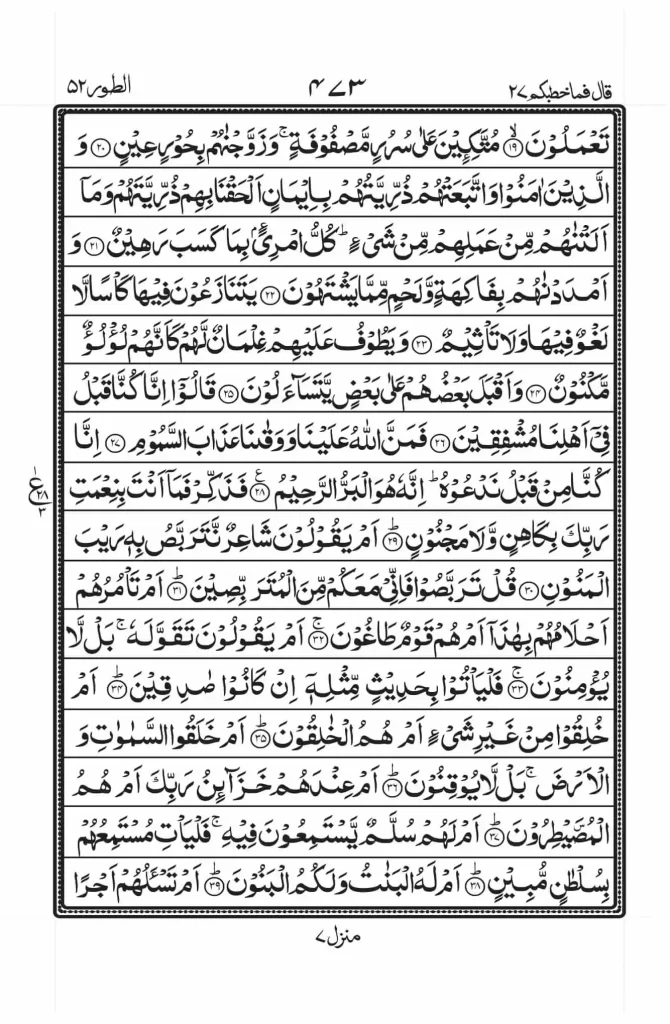 قال فما خطبکم ۲۷
۴۷۳
الطور ۵۲
تَعۡمَلُوۡنَ ۙ﴿۱۹﴾ مُتَّكِـِٕيۡنَ عَلٰى سُرُرٍ مَّصۡفُوۡفَةٍ ۚ وَزَوَّجۡنٰهُمۡ بِحُوۡرٍ عِيۡنٍ ﴿۲۰﴾ وَ
الَّذِيۡنَ اٰمَنُوۡا وَاتَّبَعَتۡهُمۡ ذُرِّيَّتُهُمۡ بِاِيۡمَانٍ اَلۡحَـقۡنَا بِهِمۡ ذُرِّيَّتَهُمۡ وَمَاۤ
اَلَـتۡنٰهُمۡ مِّنۡ عَمَلِهِمۡ مِّنۡ شَىۡءٍ ؕ كُلُّ امۡرِیًٴۢ بِمَا كَسَبَ رَهِيۡنٌ ﴿۲۱﴾ وَ
اَمۡدَدۡنٰهُمۡ بِفَاكِهَةٍ وَّلَحۡمٍ مِّمَّا يَشۡتَهُوۡنَ ﴿۲۲﴾ يَتَـنَازَعُوۡنَ فِيۡهَا كَاۡسًا لَّا
لَغۡوٌ فِيۡهَا وَلَا تَاۡثِيۡمٌ ﴿۲۳﴾ وَيَطُوۡفُ عَلَيۡهِمۡ غِلۡمَانٌ لَّهُمۡ كَاَنَّهُمۡ لُـؤۡلُـؤٌ
مَّكۡنُوۡنٌ ﴿۲۴﴾ وَاَقۡبَلَ بَعۡضُهُمۡ عَلٰى بَعۡضٍ يَّتَسَآءَلُوۡنَ ﴿۲۵﴾ قَالُـوۡۤا اِنَّا كُـنَّا قَبۡلُ
فِىۡۤ اَهۡلِنَا مُشۡفِقِيۡنَ ﴿۲۶﴾ فَمَنَّ اللّٰهُ عَلَيۡنَا وَوَقٰٮنَا عَذَابَ السَّمُوۡمِ ﴿۲۷﴾ اِنَّا
كُـنَّا مِنۡ قَبۡلُ نَدۡعُوۡهُ ؕ اِنَّهٗ هُوَ الۡبَـرُّ الرَّحِيۡمُ ﴿۲۸﴾ ع فَذَكِّرۡ فَمَاۤ اَنۡتَ بِنِعۡمَتِ
ع ۱ ۲۸ ۳
رَبِّكَ بِكَاهِنٍ وَّلَا مَجۡنُوۡنٍ ؕ﴿۲۹﴾ اَمۡ يَقُوۡلُوۡنَ شَاعِرٌ نَّتَـرَبَّصُ بِهٖ رَيۡبَ
الۡمَنُوۡنِ ﴿۳۰﴾ قُلۡ تَرَبَّصُوۡا فَاِنِّىۡ مَعَكُمۡ مِّنَ الۡمُتَـرَبِّصِيۡنَ ؕ﴿۳۱﴾ اَمۡ تَاۡمُرُهُمۡ
اَحۡلَامُهُمۡ بِهٰذَآ اَمۡ هُمۡ قَوۡمٌ طَاغُوۡنَ ۚ﴿۳۲﴾ اَمۡ يَقُوۡلُوۡنَ تَقَوَّلَهٗ ۚ بَلْ لَّا
يُؤۡمِنُوۡنَ ۚ﴿۳۳﴾ فَلۡيَاۡتُوۡا بِحَدِيۡثٍ مِّثۡلِهٖۤ اِنۡ كَانُوۡا صٰدِقِيۡنَ ؕ﴿۳۴﴾ اَمۡ
خُلِقُوۡا مِنۡ غَيۡرِ شَىۡءٍ اَمۡ هُمُ الۡخٰلِقُوۡنَ ؕ﴿۳۵﴾ اَمۡ خَلَـقُوا السَّمٰوٰتِ وَ
الۡاَرۡضَ ۚ بَلْ لَّا يُوۡقِنُوۡنَ ؕ﴿۳۶﴾ اَمۡ عِنۡدَهُمۡ خَزَآٮِٕنُ رَبِّكَ اَمۡ هُمُ
الۡمُصَۜيۡطِرُوۡنَ ؕ﴿۳۷﴾ اَمۡ لَهُمۡ سُلَّمٌ يَّسۡتَمِعُوۡنَ فِيۡهِ ۚ فَلۡيَاۡتِ مُسۡتَمِعُهُمۡ
بِسُلۡطٰنٍ مُّبِيۡنٍ ؕ﴿۳۸﴾ اَمۡ لَـهُ الۡبَنٰتُ وَلَـكُمُ الۡبَنُوۡنَ ؕ﴿۳۹﴾ اَمۡ تَسۡــَٔلُهُمۡ اَجۡرًا
منزل ۷